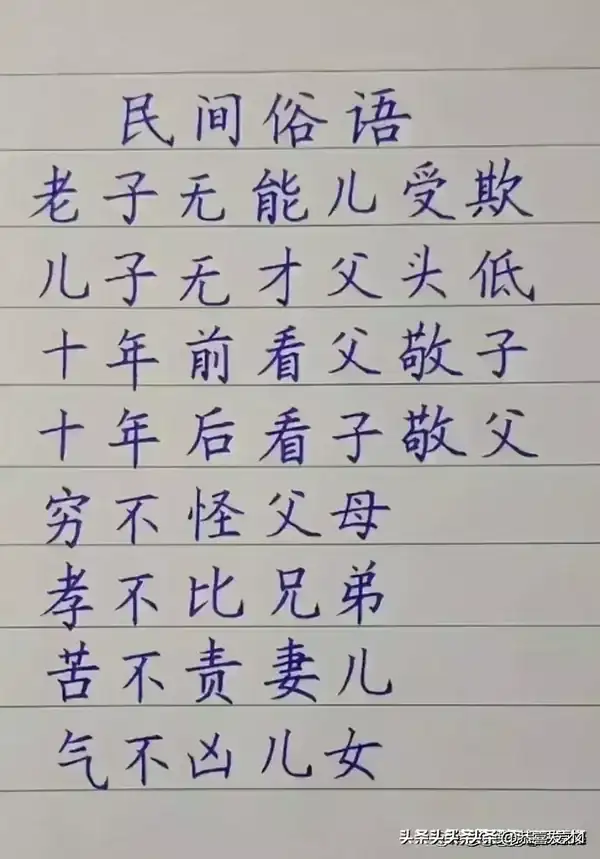 民间俗语
老子无能儿受欺
儿子无才父头低
十年前看父敬子
十年后看子敬父
穷不怪父母
孝不比兄弟
苦不责妻儿
气不凶儿女